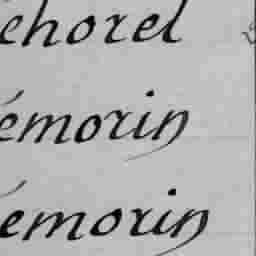 ehorel
émorin
émorin